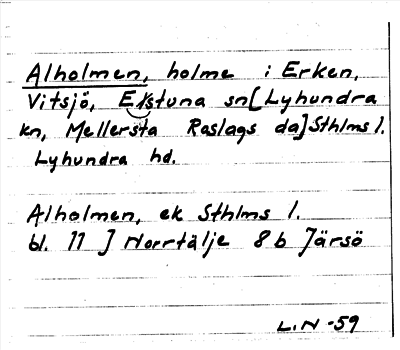 Alholmen, holme i Erken,
Vitsjö, Estuna sn [Lyhundra
kn, Mellersta Roslags da] Sthlms l.
Lyhundra hd.
Alholmen, ek Sthlms l.
bl. 11 J Norrtälje 8 b Järsö
L.N -59